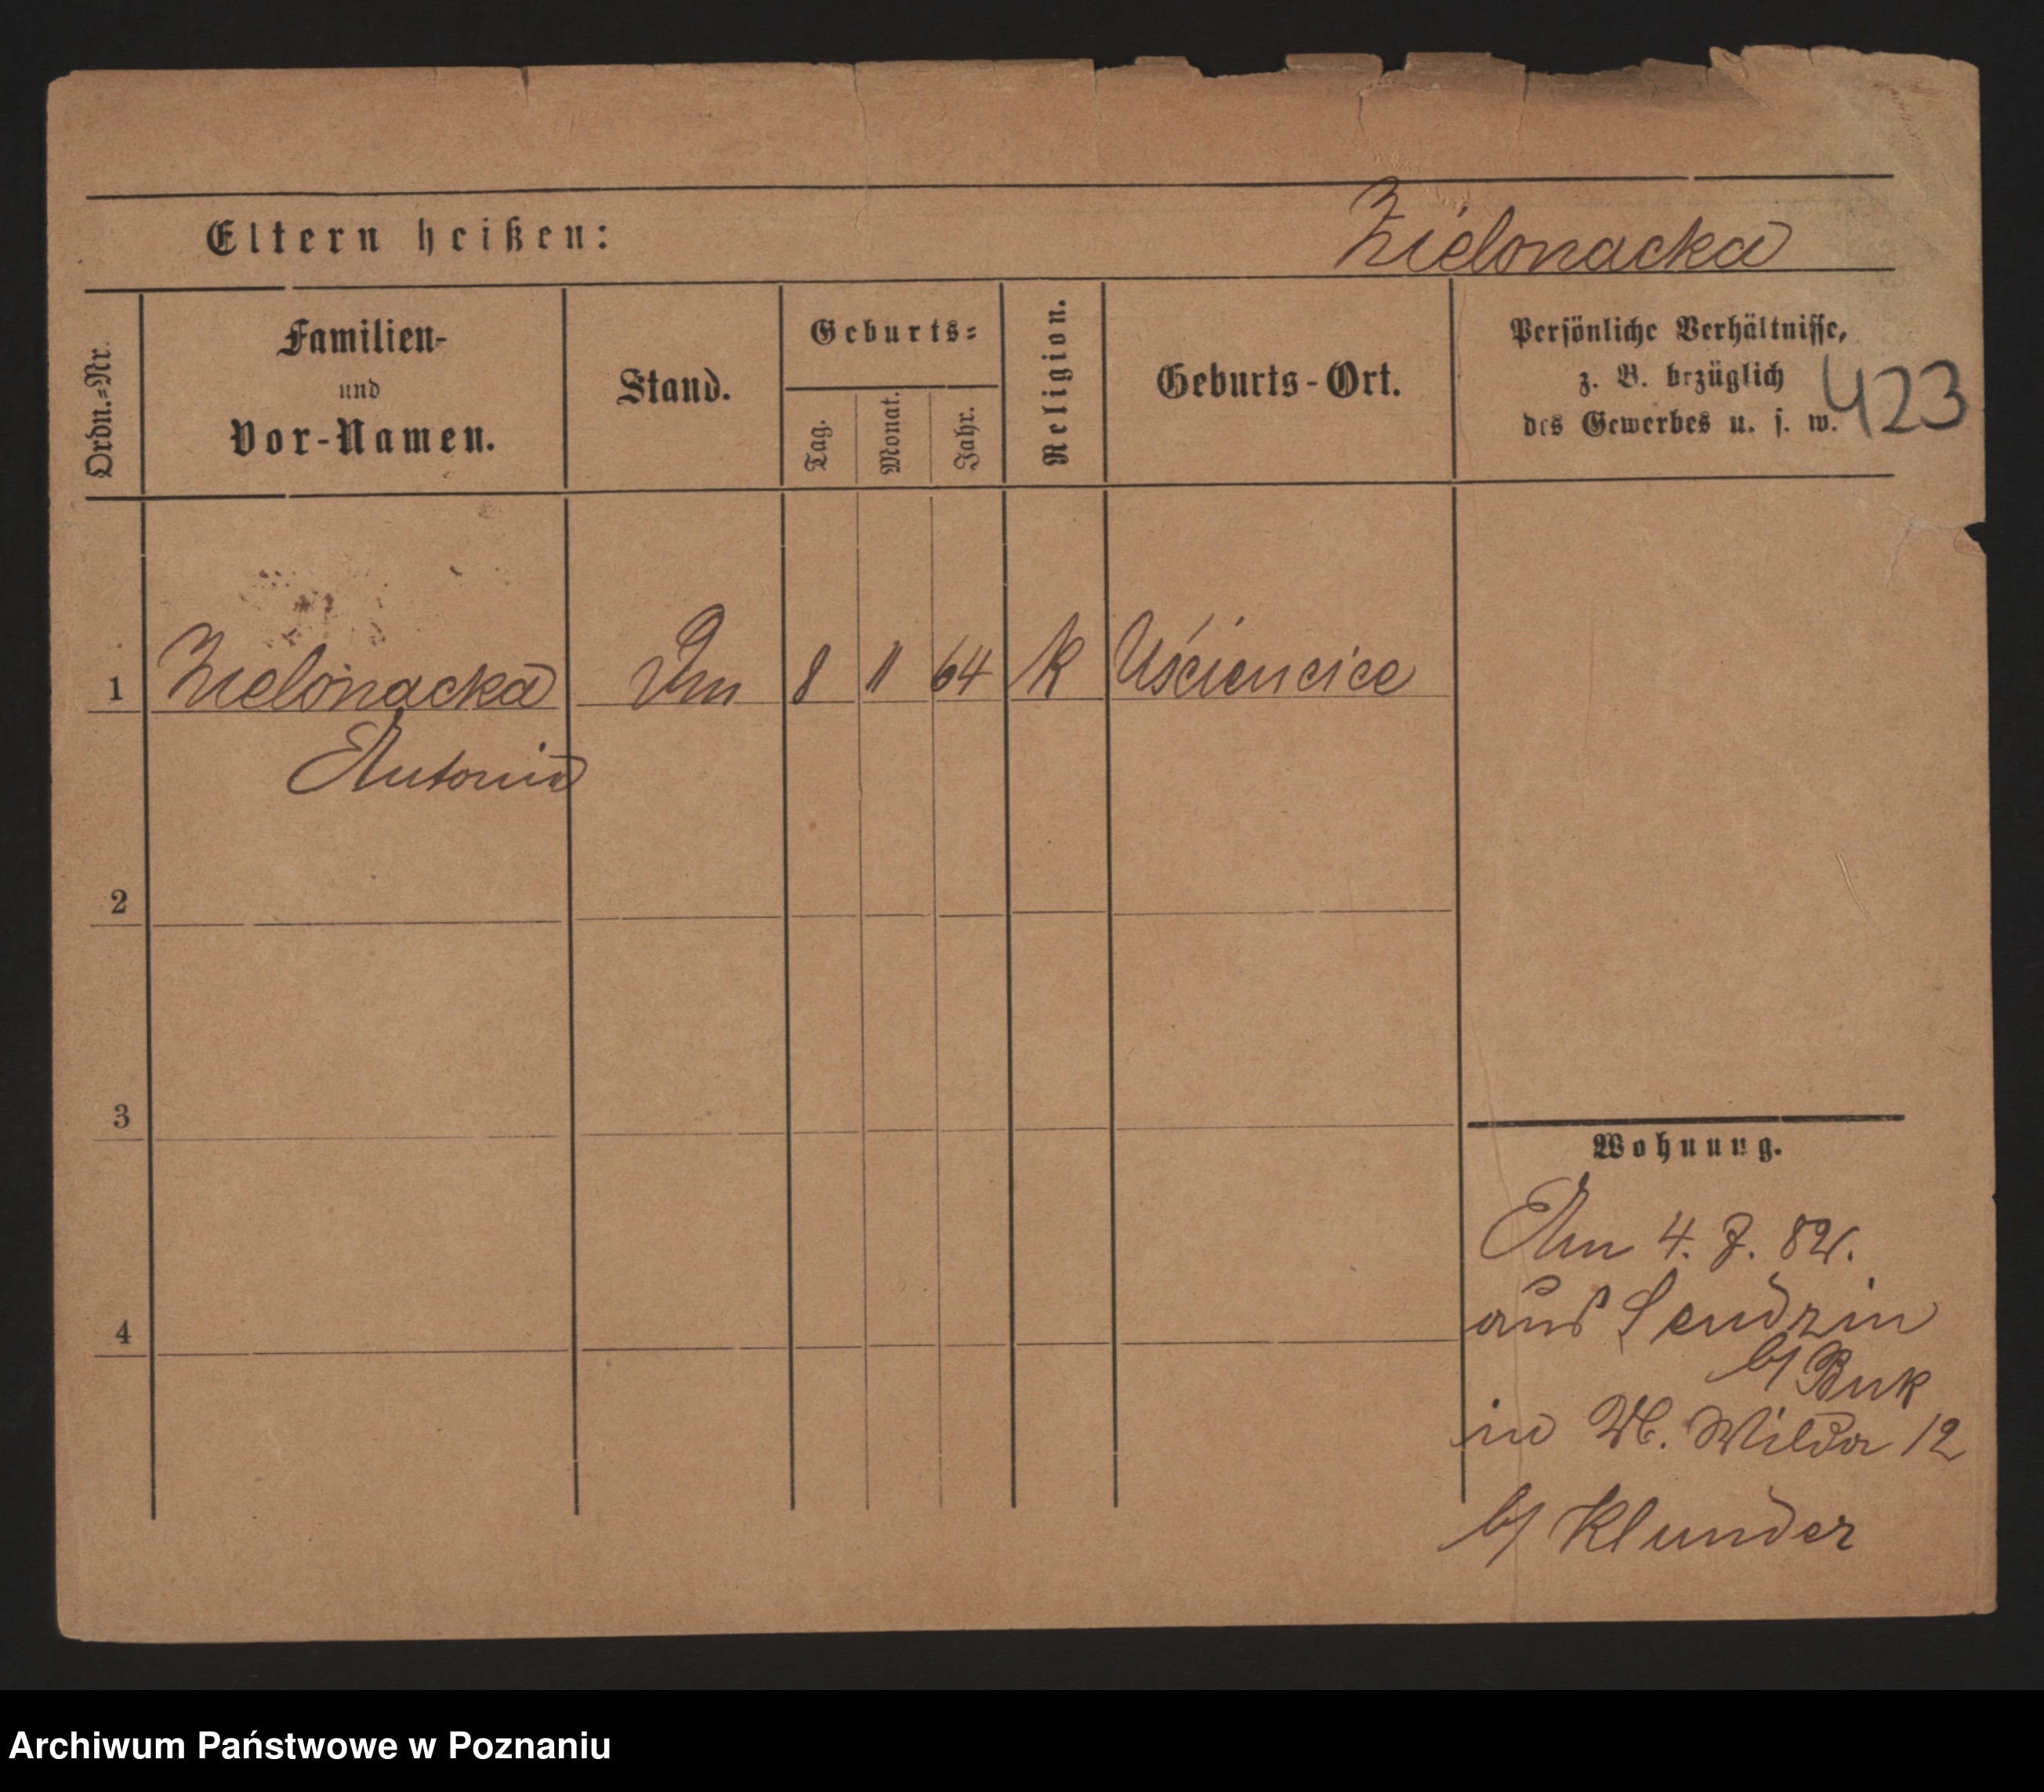 Eltern heißen:
Zielonacka
Ordn.=Nr.
Familien-
und
Vor-Namen.
Stand.
Geburts=
Tag.
Monat.
Jahr.
Religion.
Geburts-Ort.
Persönliche Verhältnisse,
z. B. bezüglich
des Gewerbes u. s. w.
423
1 Zielonacka 8 11 64 K Uścięncice
Antonia
2
3
4
Wohnung.
4. 7.
aus Sendzin
b/ Buk
in Wilda 12
b/ Klunder
Archiwum Państwowe w Poznaniu